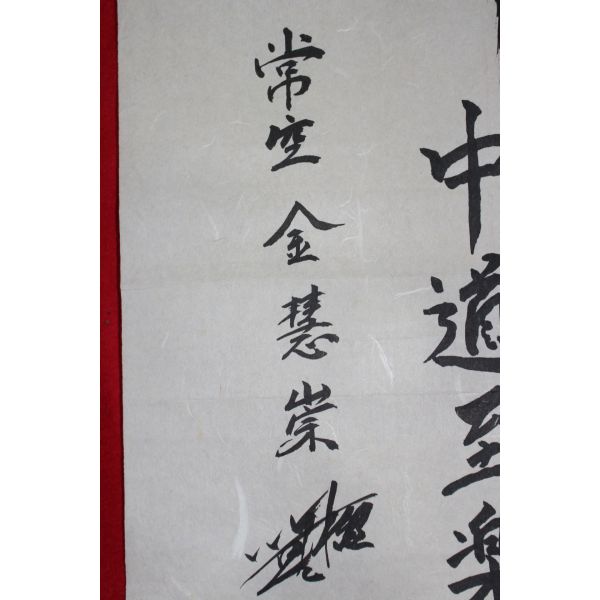 中道至楽
常空 金慧崇